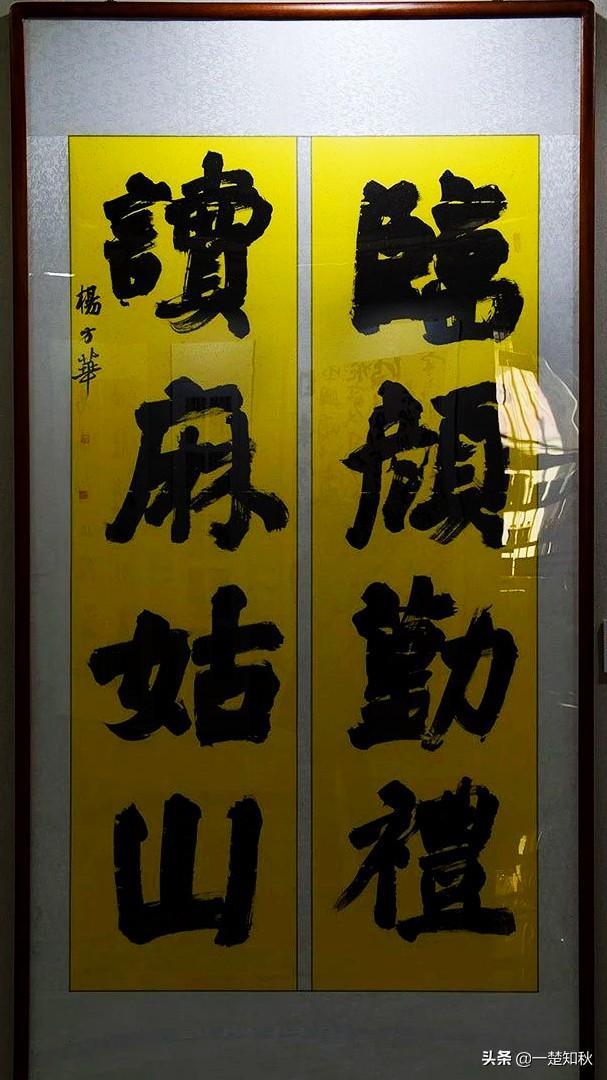 臨顔勤禮
讀麻姑山
楊方華
头条 @一楚知秋